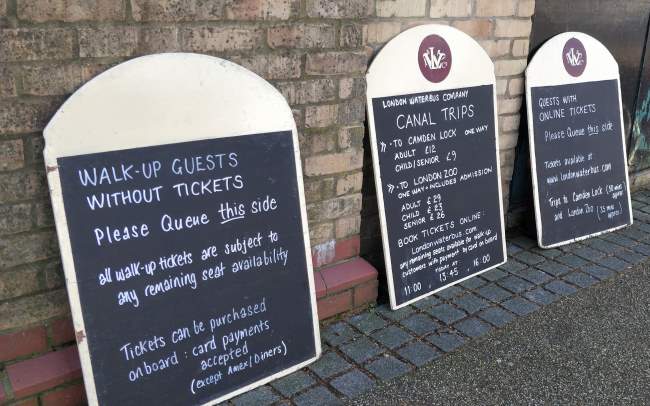 WALK-UP GUESTS
WITHOUT TICKETS
Please Queue this side
all walk-up tickets are subject to
any remaining seat availability
Tickets can be purchased
onboard : card payments
accepted
(except Amex/Diners)
LONDON WATERBUS COMPANY
CANAL TRIPS
- TO CAMDEN LOCK ONE WAY
ADULT £12
CHILD/SENIOR £9
- TO LONDON ZOO
ONE WAY + INCLUDES ADMISSION
ADULT £29
CHILD £23
SENIOR £26
BOOK TICKETS ONLINE:
Londonwaterbus.com
any remaining seats available for walk-up
customers with payment by card on board
FRIDAY at
11:00 13:45 16:00
GUESTS WITH
ONLINE TICKETS
Please Queue this side
Tickets available at
www.londonwaterbus.com
Trips to Camden Lock (50 mins approx)
and London Zoo (35 mins approx)